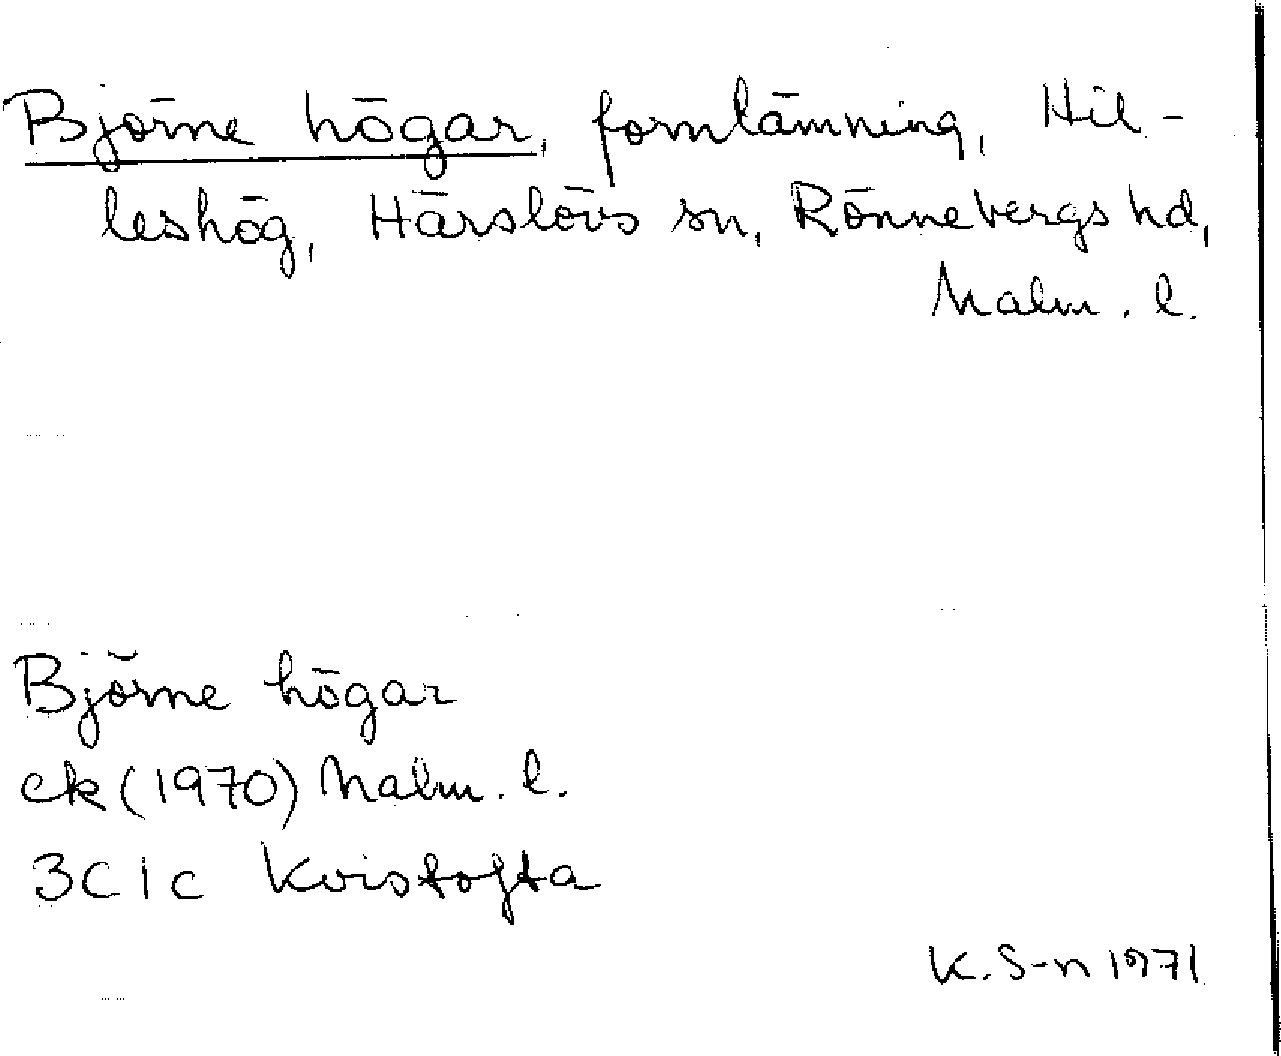 Björne högar, fornlämning, Hil-
leshög, Härslövs sn, Rönnebergs hd,
Malm. l.
Björne högar
ek (1970) Malm. l.
3C 1c Kvistofta
K. S-n 1971